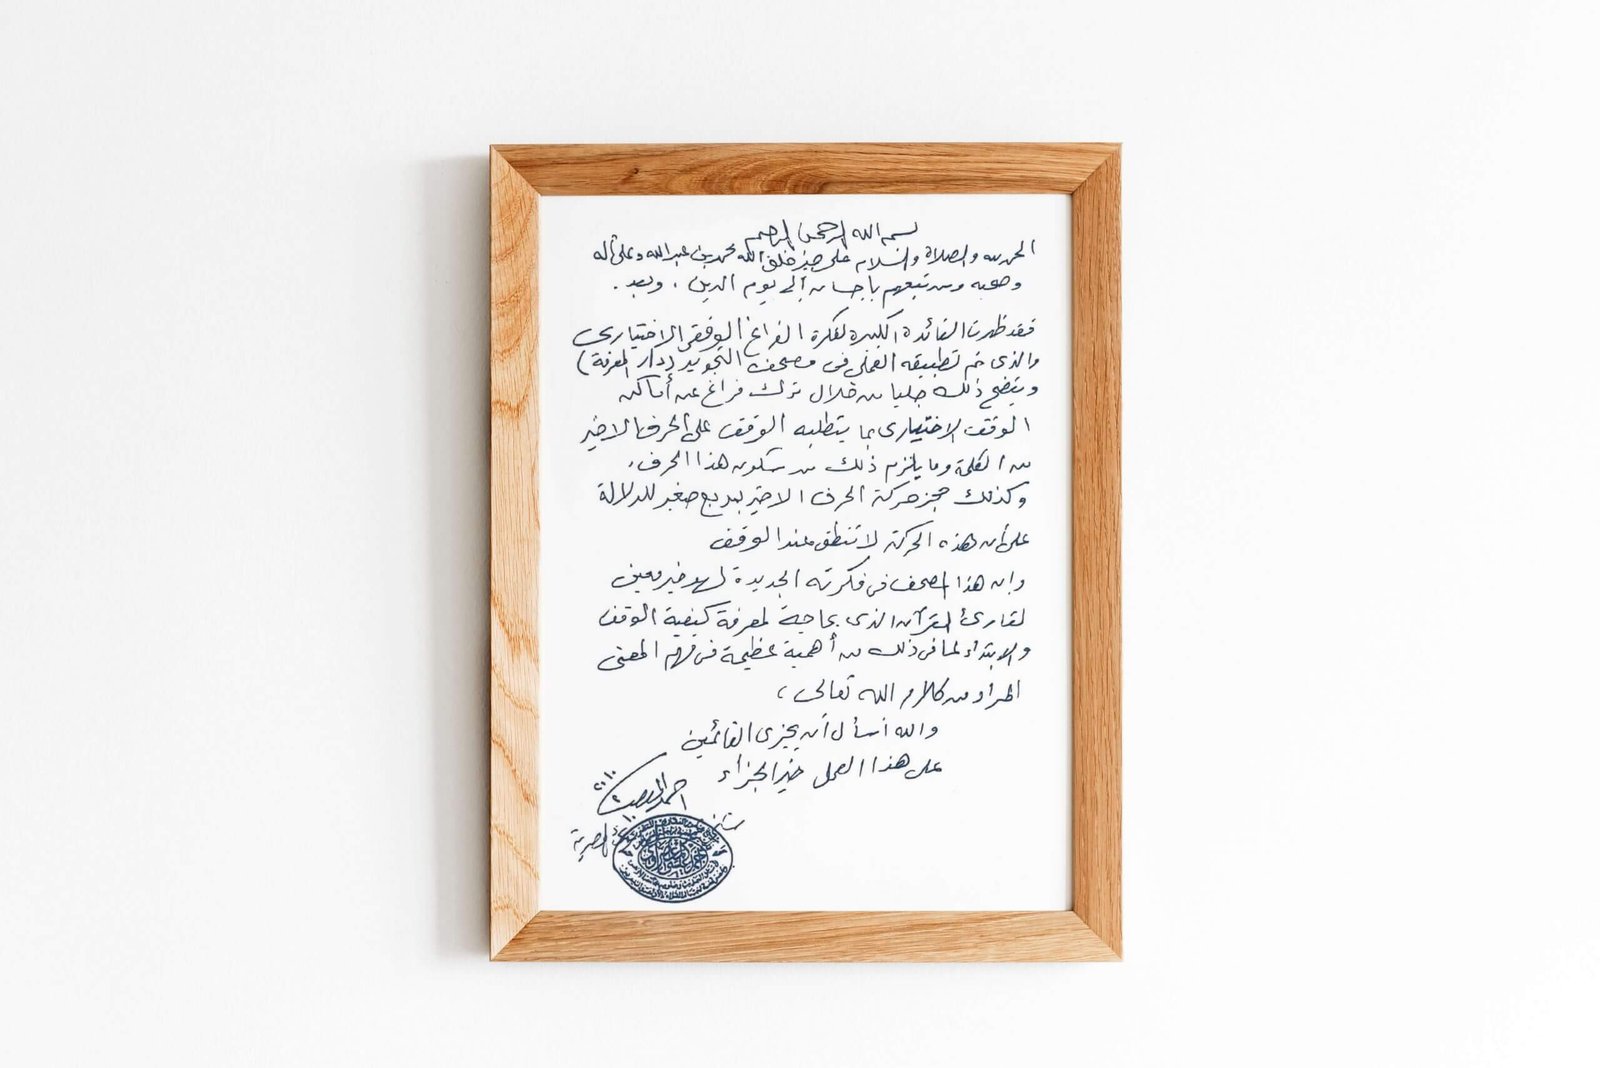 بسم الله الرحمن الرحيم
الحمد لله والصلاة والسلام على خير خلق الله محمد بن عبد الله وعلى آله
وصحبه ومن تبعهم بإحسان إلى يوم الدين ، وبعد .
فقد ظهرت الفائدة الكبيرة لفكرة الفراغ الوقفي الاختياري
والذي تم تطبيقه العملي في مصحف التجويد (دار المعرفة)
ويتضح ذلك جليا من خلال ترك فراغ عند أماكن
الوقف الاختياري بما يتطلبه الوقف على الحرف الاخير
من الكلمة وما يلزم ذلك من سكون هذا الحرف ،
وكذلك حجز حركة الحرف الاخير بمربع صغير للدلالة
على أن هذه الحركة لا تنطق عند الوقف
وإن هذا المصحف في فكرته الجديدة لهو خير معين
لقارئ القرآن الذي بحاجة لمعرفة كيفية الوقف
والابتداء لما في ذلك من أهمية عظيمة في فهم المعنى
المراد من كلام الله تعالى ،
والله أسأل أن يجزي القائمين
على هذا العمل خير الجزاء
أحمد
المصرية